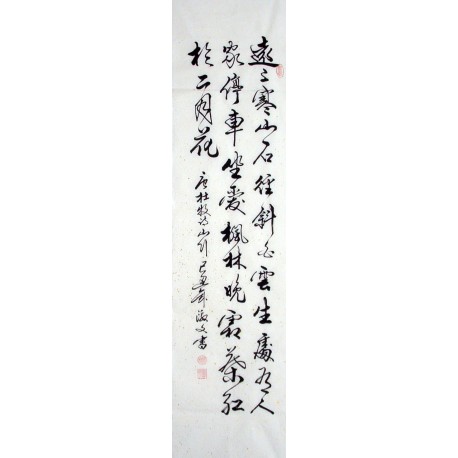 遠上寒山石徑斜白雲生處有人
家停車坐愛楓林晚霜葉紅
於二月花
唐杜牧詩山行己丑年文書